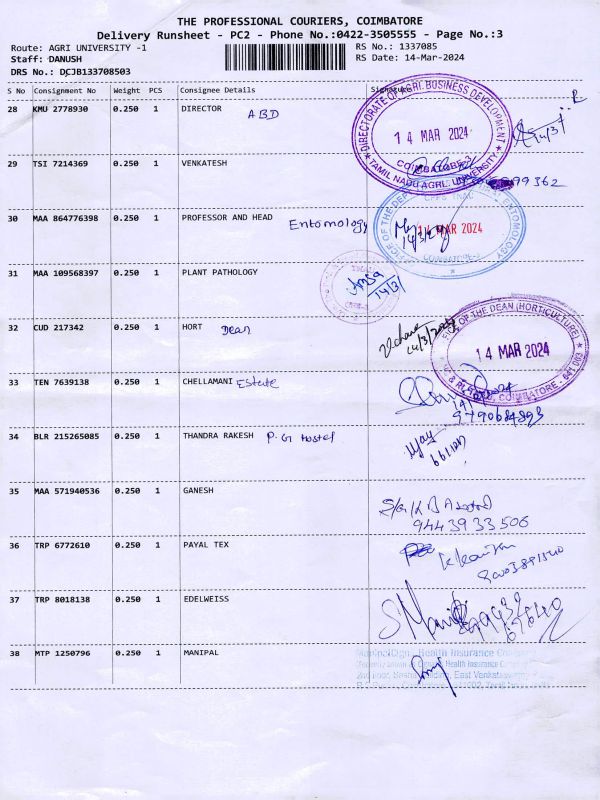 THE PROFESSIONAL COURIERS, COIMBATORE
Delivery Runsheet - PC2 - Phone No.:0422-3505555 - Page No.:3
Route: AGRI UNIVERSITY -1
RS No.: 1337085
Staff: DANUSH
RS Date: 14-Mar-2024
DRS No.: DCJB133708503
S No Consignment No Weight PCS Consignee Details Signature
28 KMU 2778930 0.250 1 DIRECTOR ABD
DIRECTORATE OF AGRI. BUSINESS DEVELOPMENT
14 MAR 2024
COIMBATORE-3
TAMIL NADU AGRL. UNIVERSITY
14/3/
29 TSI 7214369 0.250 1 VENKATESH
99362
30 MAA 864776398 0.250 1 PROFESSOR AND HEAD Entomology
ENTOMOLOGY
14 MAR 2024
COIMBATORE-3
31 MAA 109568397 0.250 1 PLANT PATHOLOGY
14/3/
32 CUD 217342 0.250 1 HORT Dean
14/3/2024
OF THE DEAN (HORTICULTURE)
14 MAR 2024
COIMBATORE - 641 003
33 TEN 7639138 0.250 1 CHELLAMANI Estate
34 BLR 215265085 0.250 1 THANDRA RAKESH P.G Hostel
35 MAA 571940536 0.250 1 GANESH
9443933506
36 TRP 6772610 0.250 1 PAYAL TEX
37 TRP 8018138 0.250 1 EDELWEISS
38 MTP 1250796 0.250 1 MANIPAL
Health Insurance Company
Health Insurance
East Venkataswamy